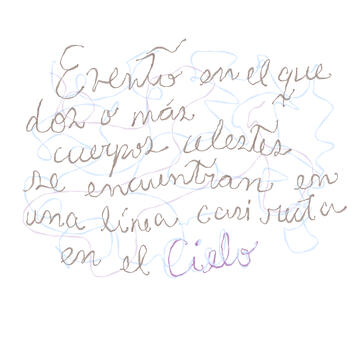 Evento en el que
dos o más
cuerpos celestes
se encuentran en
una línea casi recta
en el Cielo